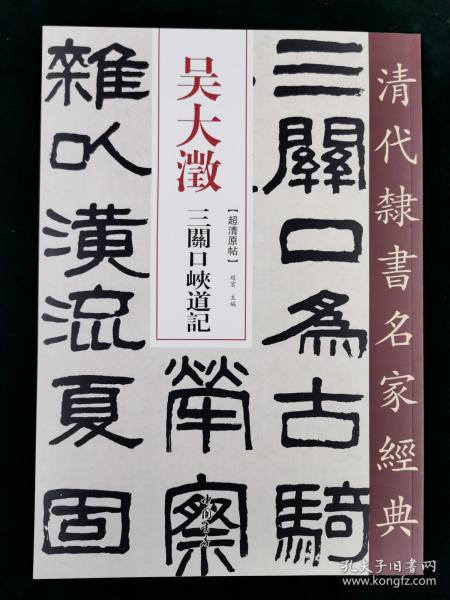 清代隸書名家經典
三關口為古騎
㡬察
雜以潢流夏固
吴大澂
三關口峽道記
【超清原帖】
趙宏 主編
中國書店
孔夫子旧书网
www.kongfz.com